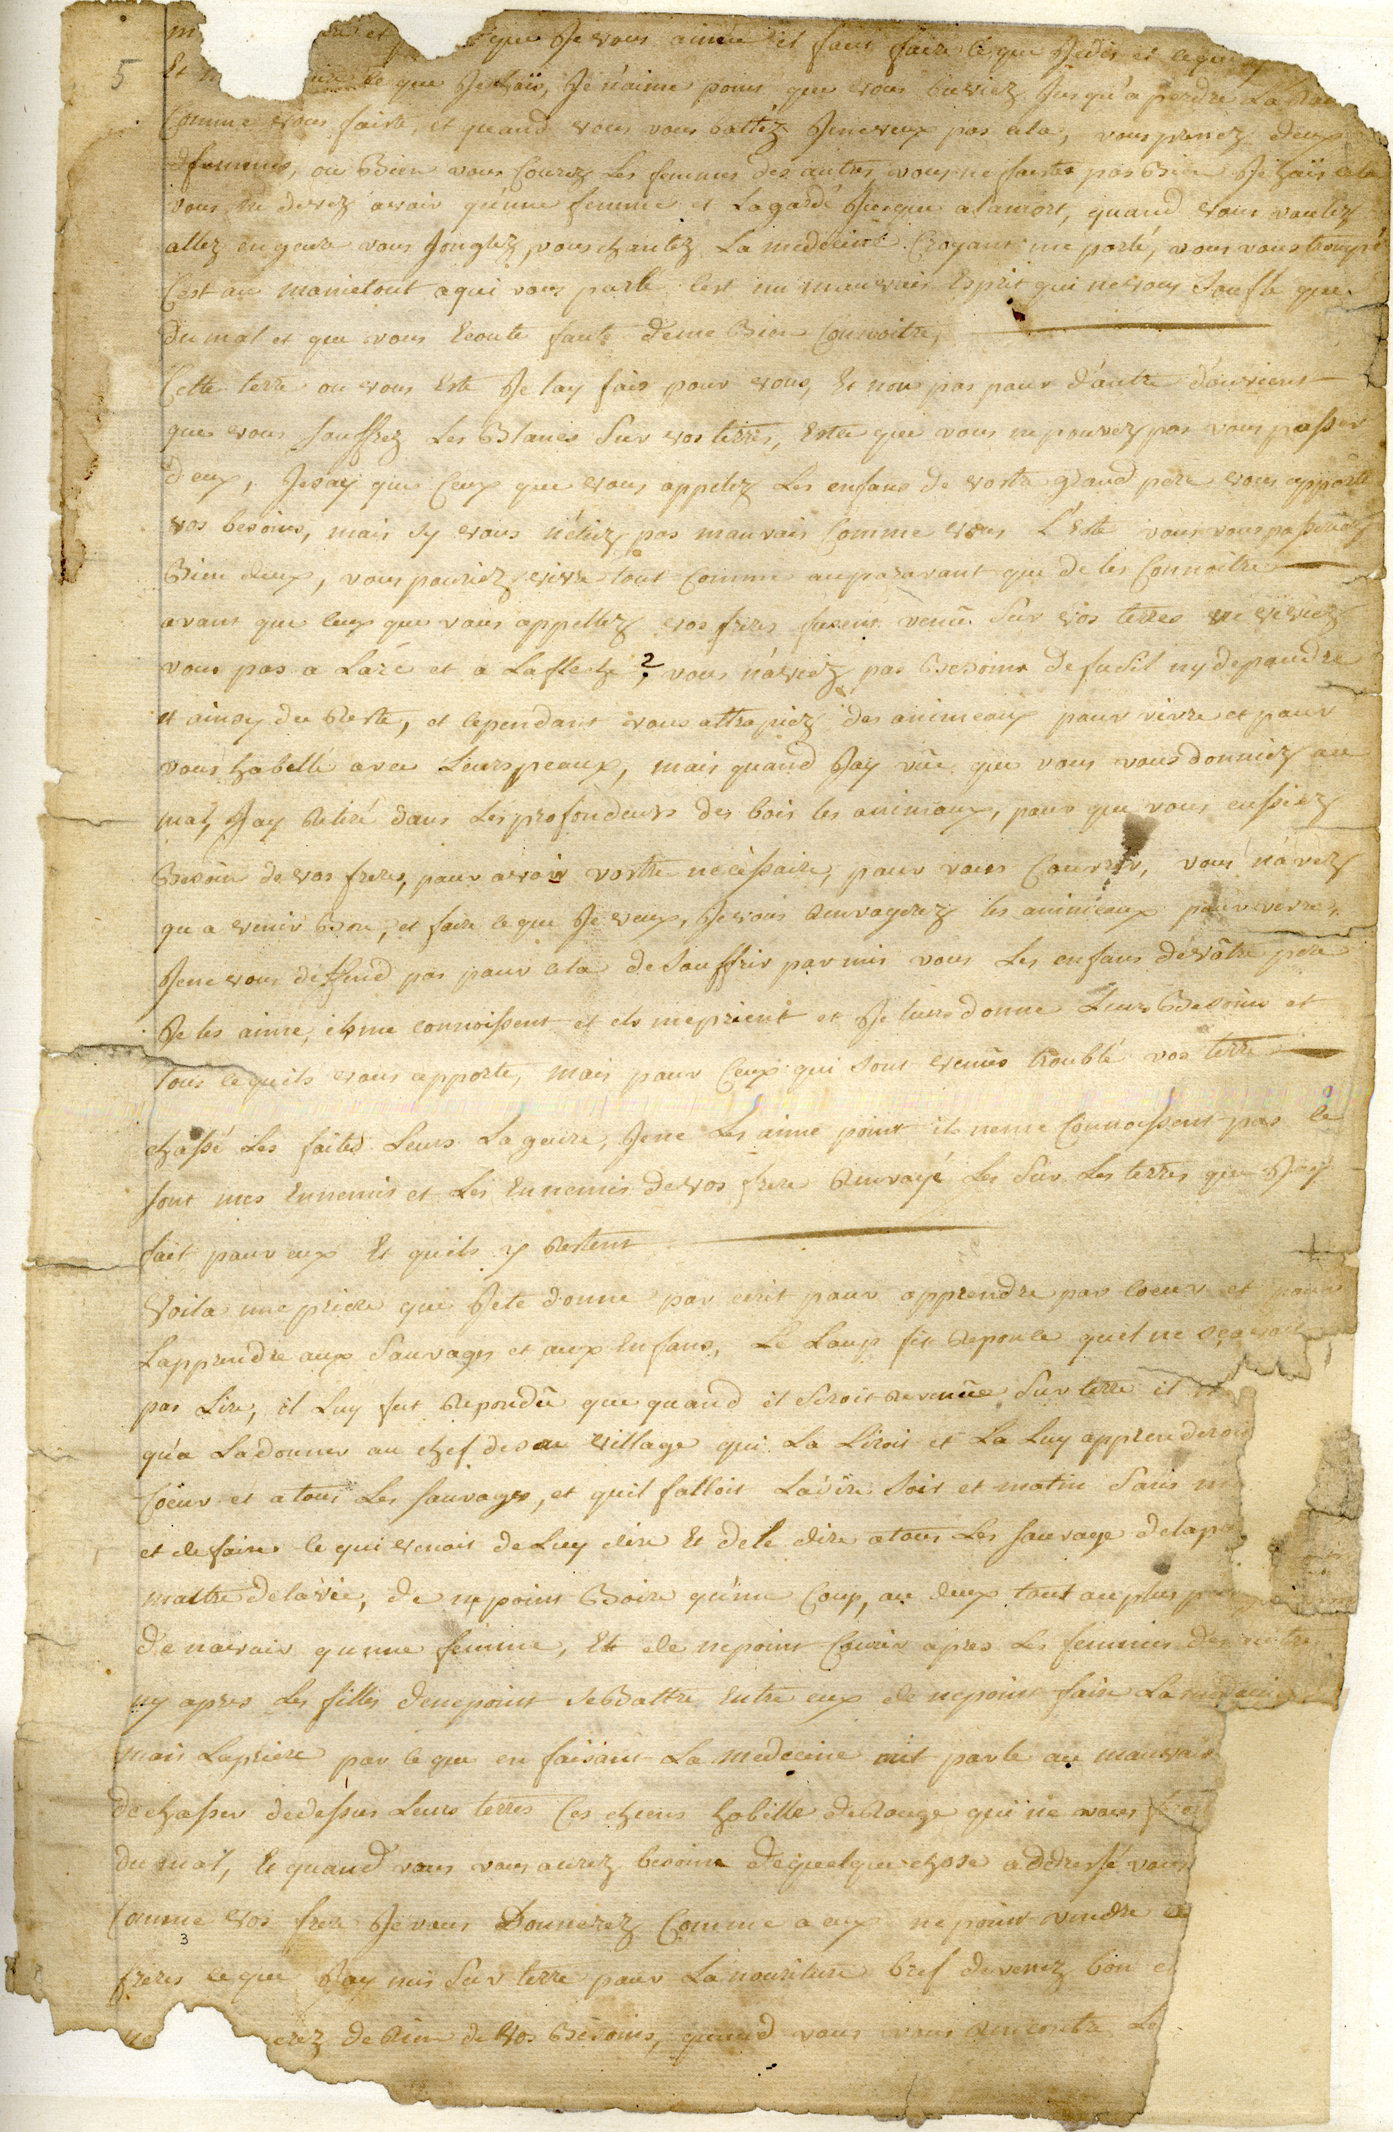 5
que Je vous aime il faut faire ce que Je dis et ce que
Et ce que Je haïs, Je n'aime point que vous buviez Jusqu'a perdre La
Comme vous faite, et quand vous vous battéz Je ne veux pas cela, vous prenez deux
femmes, ou Bien vous Courez Les femmes des autres vous ne faites pas Bien Je haïs cela
vous ne devez avoir qu'une femme et La gardé Jusque a la mort, quand vous voulez
allez en guere vous Jonglez, vous chantez La medecine Croyant me parlé, vous vous trompé
C'est au manietout a qui vous parle c'est un mauvais Esprit qui ne vous Soufle que
du mal et que vous Ecoute faute de me Bien Connoitre,
Cette terre ou vous Este Je lay fais pour vous, Et non pas pour d'autre d'ou vient
que vous souffrez Les Blancs Sur vos terres, Estce que vous ne pouvez pas vous passer
d'eux, Je say que Ceux que vous appelez Les enfans de vostre grand pere vous apporte
vos besoins, mais sy vous n'étiez pas mauvais Comme vous L'Este vous vous passeriez
Bien deux, vous pouriez vivre tout Comme auparavant que de les Connoitre
avant que ceux que vous appellez vos freres fusent venûs Sur vos terres ne viviez
vous pas a Larc et a La fleche ? vous n'aviez pas Besoins de fusil ny de poudre
et ainsy du Reste, et cependant vous attrapiez des animeaux pour vivre et pour
vous habillé avec Leurs peaux, mais quand Jay vûe que vous vous donniez au
mal, Jay Retiré dans Les profondeurs des bois les animaux, pour que vous eussiez
Besoin de vos freres, pour avoir vostre nécéssaire, pour vous Couvrir, vous n'avez
qu a venir Bon, et faire ce que Je veux, Je vous Renvoyerez les animeaux pour vivre,
Je ne vous deffend pas pour cela de Souffrir parmis vous Les enfans de vôtre pere
Je les aime, ils me connoissent et ils me prient et Je leurs donne Leurs Besoins et
tous ce quils vous apporte, mais pour Ceux qui sont venus troublé vos terre
chassé Les faites Leurs La guere, Je ne Les aime point ils ne me Connoissent pas ce
sont mes Ennemis et Les Ennemis de vos frere Renvoyé Les Sur Les terres que Jay
fait pour eux Et quils y Restent
Voila une priere que Je te donne par ecrit pour apprendre par Coeur et pour
Lapprendre aux Sauvages et aux Enfans, Le Loup fit Reponce quil ne scavoit
pas Lire, il Luy fut Repondû que quand il Seroit Revenûe Sur terre il
qu'a La donner au chef de son village qui La Liroit et La Luy apprenderoit
Coeur et a tous Les Sauvages, et quil falloit La dire Soir et matin Sans
et de faire ce qui venoit de Luy dire Et de le dire a tous Les Sauvage de la
maitre de la vie, de ne point Boire qu'une Coup, ou deux tout au plus
de n'avoir qu'une femme, Et de ne point Courir apres Les femmes des autre
ny apres Les filles de ne point Se Battre Entre eux de ne point faire La medecine
mais La priere par ce que en faisant La medecine on parle au mauvais
de chasser de dessus Leurs terres Ces chiens habille de Rouge qui ne vous
du mal, Et quand vous vous aurez besoins de quelque chose addressé vous
Comme vos frere Je vous Donnerez Comme a eux ne point vendre
3
freres ce que Jay mis Sur terre pour La nouriture bref devenez bon
de Rien de Vos Besoins, quand vous vous Rencontre